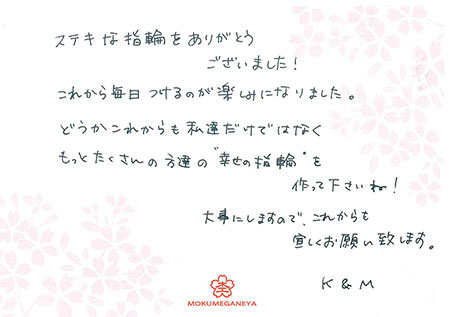 ステキな指輪をありがとう
ございました!
これから毎日つけるのが楽しみになりました。
どうかこれからも私達だけではなく
もっとたくさんの方達の"幸せの指輪"を
作って下さいね!
大事にしますので、これからも
宜しくお願い致します。
K & M
MOKUMEGANEYA